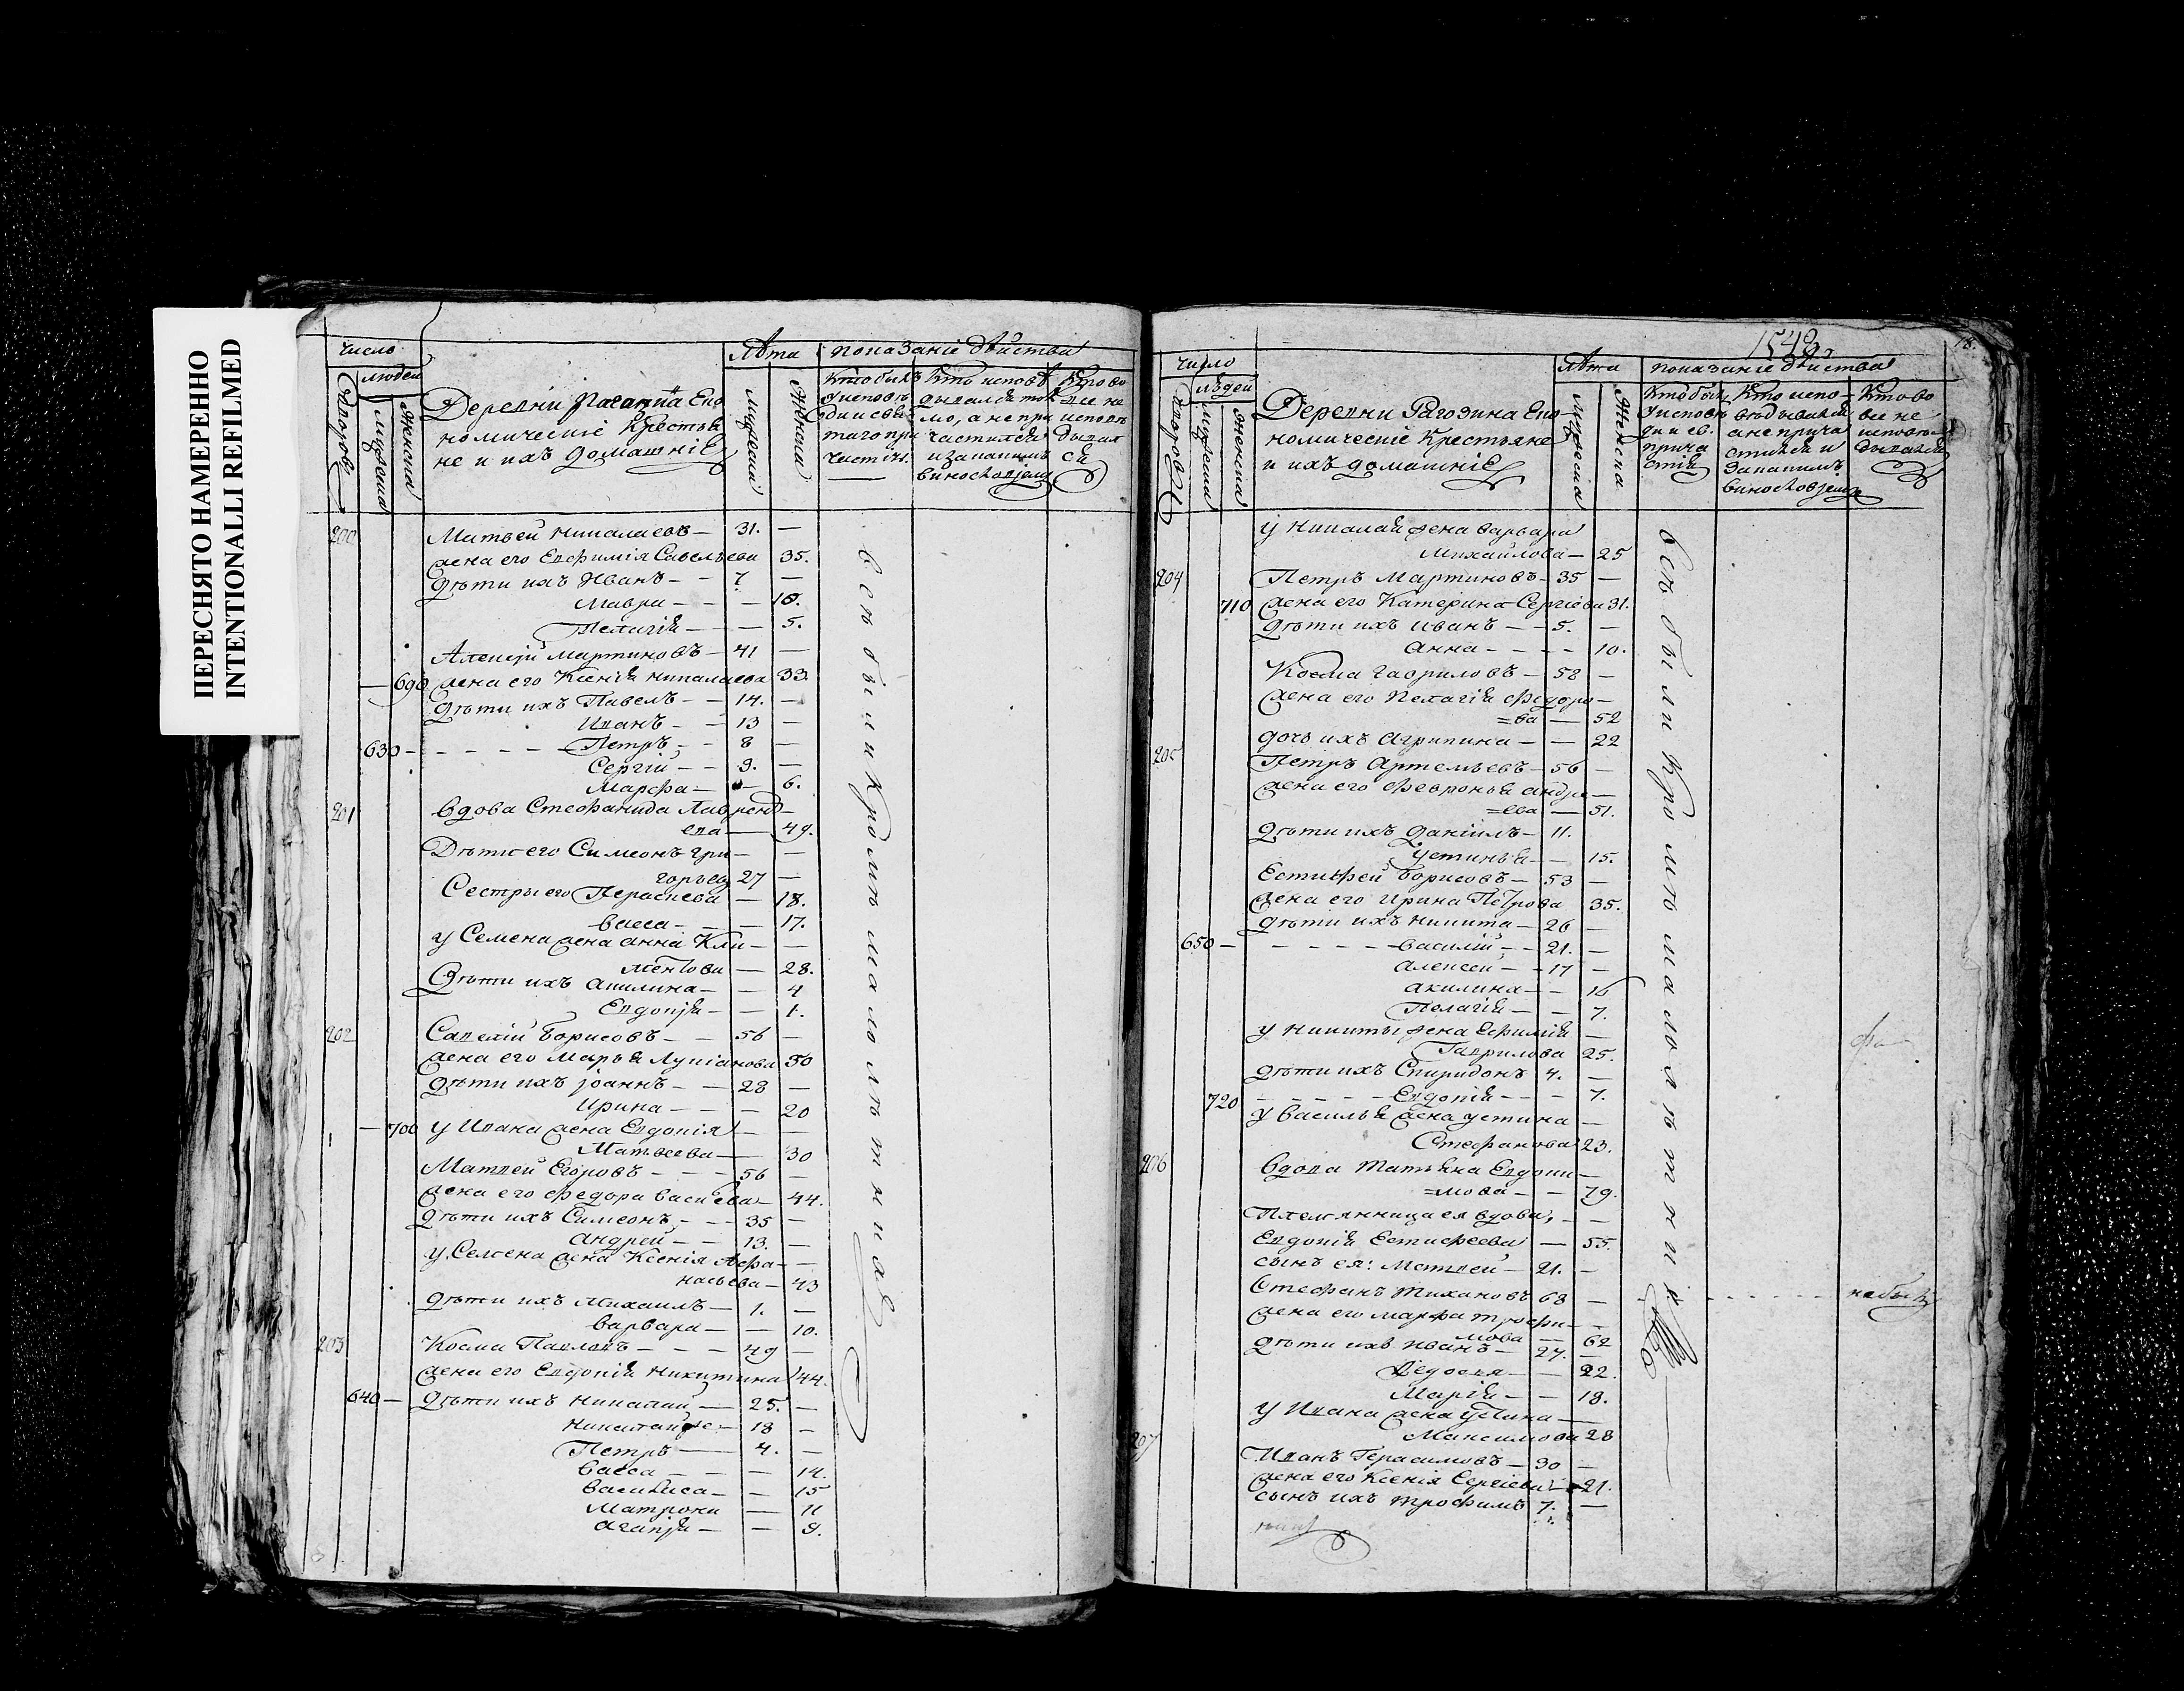 ПЕРЕСНЯТО НАМЕРЕННО
INTENTIONALLI REFILMED
число
людей
дворовъ
мужеска
женска
Деревни Еко
номическіе Крестья
не и ихъ домашніе
лѣта
мужеска
женска
показаніе дѣйства
Кто былъ
у исповѣ
ди и свя
таго при
частія
Кто исповѣ
дывался ток
мо, а не при
частился
и за какимъ
винословіемъ
Кто во
все не
исповѣ
дывал
ся
200
Матвей Николаевъ — 31. —
жена его Евфимія Савельева 35.
дѣти ихъ Иванъ — — 7 —
Мавра — — — 10.
Пелагія — — 5.
Алексѣй Мартиновъ — 41 —
— 690 жена его Ксенія Николаева 33.
дѣти ихъ Павелъ — — 14. —
Иванъ — — 13 —
630 — — — — — Петръ — — 8 —
Сергій — — 9. —
Марфа — — 6.
201
вдова Стефанида Лаврент —
ева — 49.
Дѣти его Симеонъ Гри — —
горьев 27 —
Сестры его Пераскева — 18.
васса — — — 17.
у Семена жена анна Кли — —
ментова — 28.
дѣти ихъ акилина — — 4
Евдокія — — 1.
202
Савелій Борисовъ — — 56 —
жена его Марья Лукіанова 50
дѣти ихъ іоаннъ — — 28 —
Ирина — — — 20
— 700 у Ивана жена Евдокія — —
Матвеева — 30
Матвей Егоровъ — — — 56 —
жена его Федора Васи ева — 44.
дѣти ихъ Симеонъ — — 35 —
андрей — — 13. —
у Семена жена Ксенія Афа — —
насьева — 43
дѣти ихъ Михаилъ — 1. —
варвара — — 10.
203
Косма Павловъ — — — 49 —
жена его Евдокія Никитина 44.
640 — дѣти ихъ Николай — 25. —
18 —
Петръ — 4. —
васса — — — 14.
василиса — — 15
Матрона — 11
агапія — — 9.
всѣ были кромѣ малолѣтнихъ
1548
78.
число
людей
дворовъ
мужеска
женска
Деревни Рагозина Еко
номическіе Крестьяне
и ихъ домашніе
лѣта
мужеска
женска
показаніе дѣйства
Кто былъ
у исповѣ
ди и св.
прича
стія
Кто испо
вѣдывался
а не прича
стился и
за какимъ
винословіемъ
Кто во
все не
исповѣ
дывался
у Николая жена варвара
Михайлова — 25
204
Петръ Мартиновъ — 35 —
710 жена его Катерина Сергіева 31.
дѣти ихъ иванъ — — 5. —
анна — — — — 10.
Косма Гавриловъ — 58 —
жена его Пелагія Федоро —
=ва — 52
дочь ихъ агрипина — — 22
205
Петръ Артемьевъ — 56 —
жена его Февронья андре —
=ева — 51.
дѣти ихъ даніилъ — 11.
устинья — — 15.
Естифей Борисовъ — 53 —
жена его Ирина Петрова 35.
дѣти ихъ никита — 26 —
650 — — — — — василій — — 21. —
алексей — — 17 —
акилина — — 16
Пелагія — — 7.
у Никиты жена Ефимія —
Гаврилова 25.
дѣти ихъ Спиридонъ 4. —
720 — — — — — Евдокія — — — 7.
у Василья жена устина —
Стефанова 23.
206
вдова Татьяна Евдоки —
=мова — — 79.
Племянница ея вдова, — —
Евдокія Естифеева — 55.
сынъ ея: Матвей — 21. —
Стефанъ Тихановъ 68 — — — — — — не былъ
жена его марфа трофи — —
мова — 62
дѣти ихъ Иванъ — 27. —
Федосья — — 22.
Марія — — 18.
у Ивана жена устина —
Максимова 28
207
Иванъ Герасимовъ — 30 —
жена его Ксенія Сергіева — 21.
сынъ ихъ трофимъ 7. —
всѣ были кромѣ малолѣтних